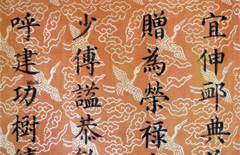 宜伸卹典
贈為榮祿
少傅謚恭
呼建功樹